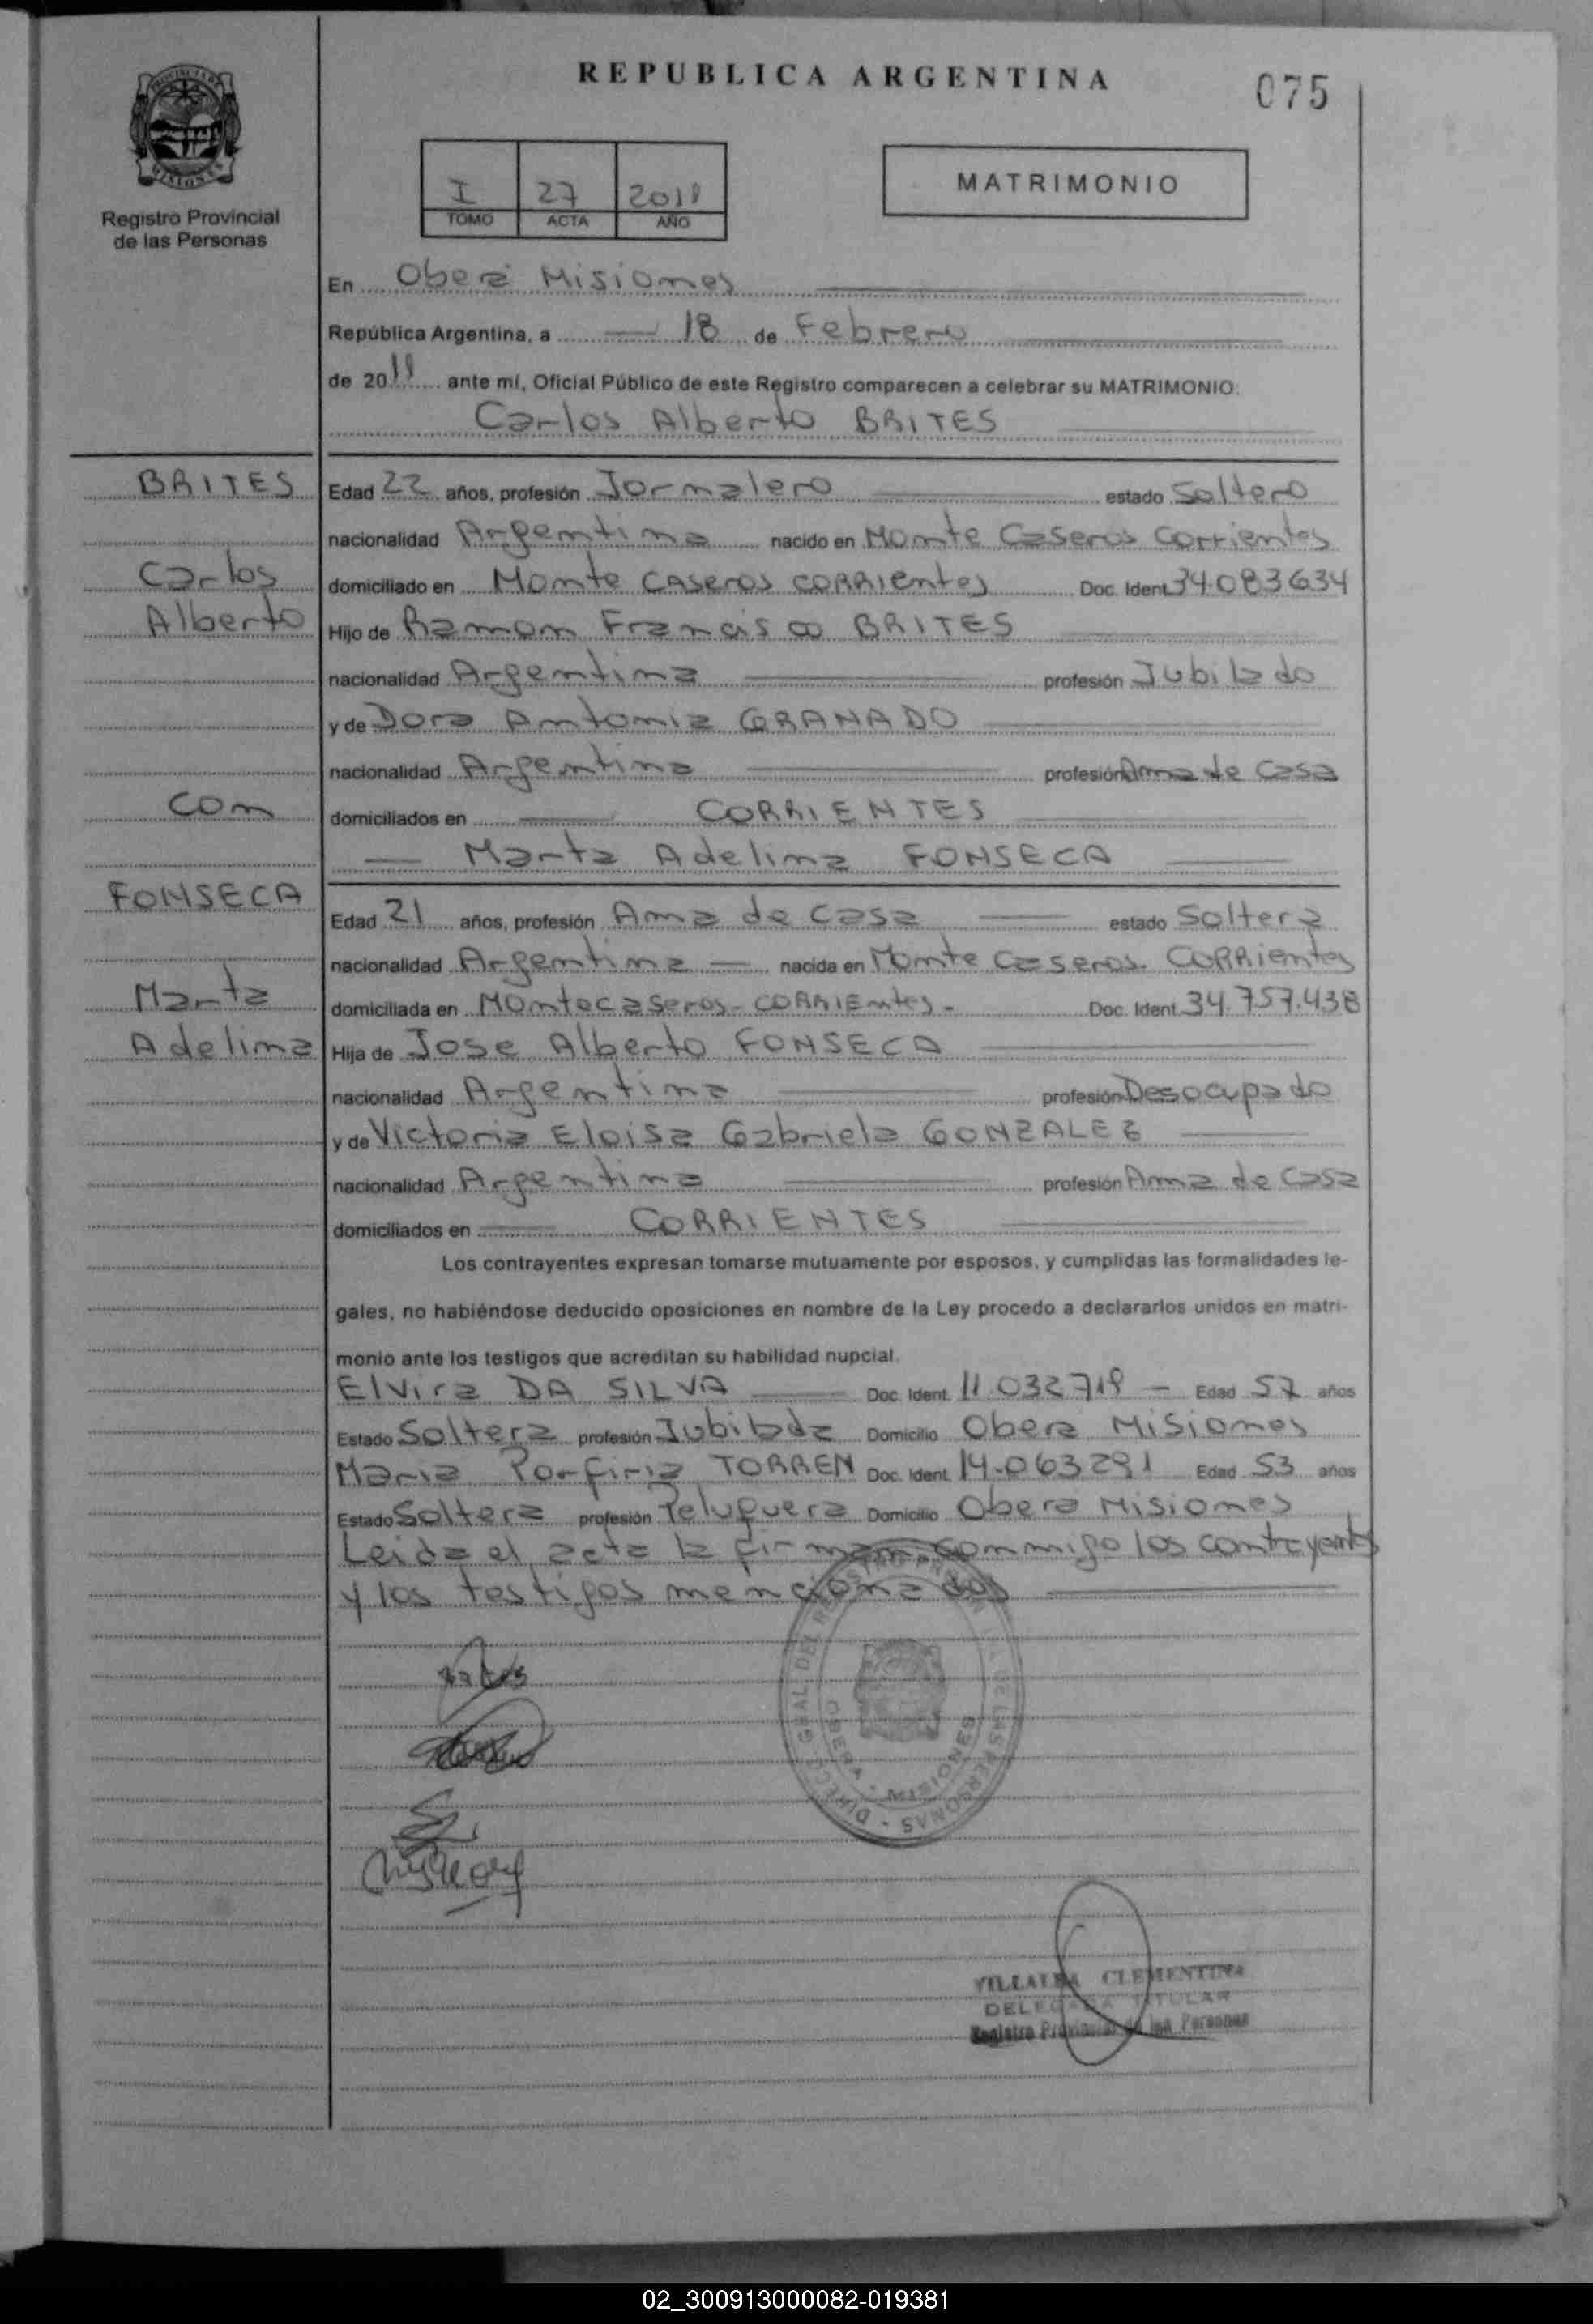 REPUBLICA ARGENTINA
075
PROVINCIA DE
MISIONES
Registro Provincial
de las Personas
I 27 2011
TOMO ACTA AÑO
MATRIMONIO
En Oberá Misiones
República Argentina, a 18 de Febrero
de 2011 ante mí, Oficial Público de este Registro comparecen a celebrar su MATRIMONIO:
Carlos Alberto BRITES
BRITES
Carlos
Alberto
con
FONSECA
Marta
Adelina
Edad 22 años, profesión Jornalero estado Soltero
nacionalidad Argentina nacido en Monte Caseros Corrientes
domiciliado en Monte CASEROS CORRIENTES Doc. Ident. 34.083634
Hijo de Ramon Francisco BRITES
nacionalidad Argentina profesión Jubilado
y de Dora Antonia GRANADO
nacionalidad Argentina profesión Ama de Casa
domiciliados en CORRIENTES
Marta Adelina FONSECA
Edad 21 años, profesión Ama de Casa estado Soltera
nacionalidad Argentina nacida en Monte Caseros. CORRientes
domiciliada en Montecaseros - CORRIEntes - Doc. Ident. 34.757.438
Hija de Jose Alberto FONSECA
nacionalidad Argentina profesión Desocupado
y de Victoria Eloisa Gabriela GONZALEZ
nacionalidad Argentina profesión Ama de Casa
domiciliados en CORRIENTES
Los contrayentes expresan tomarse mutuamente por esposos, y cumplidas las formalidades le-
gales, no habiéndose deducido oposiciones en nombre de la Ley procedo a declararlos unidos en matri-
monio ante los testigos que acreditan su habilidad nupcial.
Elvira DA SILVA Doc. Ident. 11.032719 - Edad 57 años
Estado Soltera profesión Jubilada Domicilio Obera Misiones
Maria Porfiria TORREN Doc. Ident. 14.063291 Edad 53 años
Estado Soltera profesión Peluquera Domicilio Obera Misiones
Leida el acta la firman conmigo los contrayentes
y los testigos mencionados
DIRECC. GRAL. DEL REGISTRO DE LAS PERSONAS
OBERA - MISIONES
VILLALBA CLEMENTINA
DELEGADA TITULAR
Registro Provincial de las Personas
02_300913000082-019381